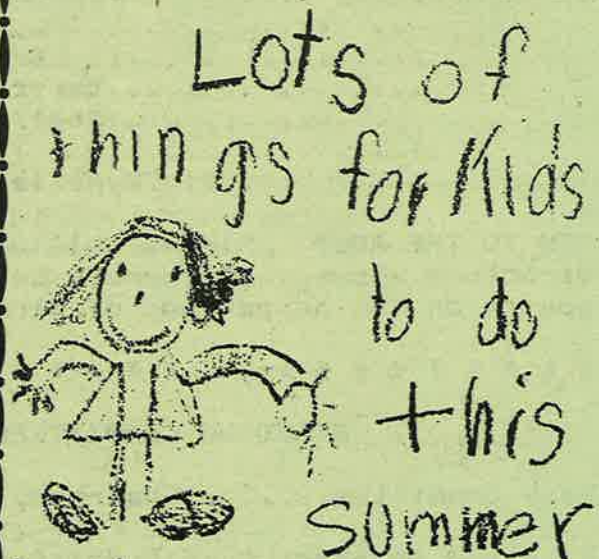 Lots of
things for Kids
to do
this
summer